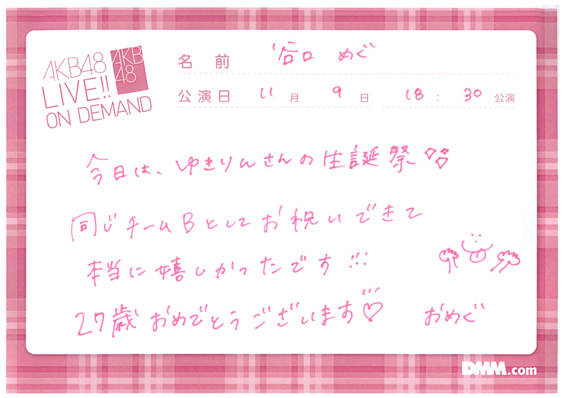 AKB48
LIVE!!
ON DEMAND
AKB
48
名前 谷口 めぐ
公演日 11月 9日 18:30公演
今日は、ゆきりんさんの生誕祭♡♡
同じチームBとしてお祝いできて
本当に嬉しかったです!!!
27歳おめでとうございます♡
おめぐ
DMM.com